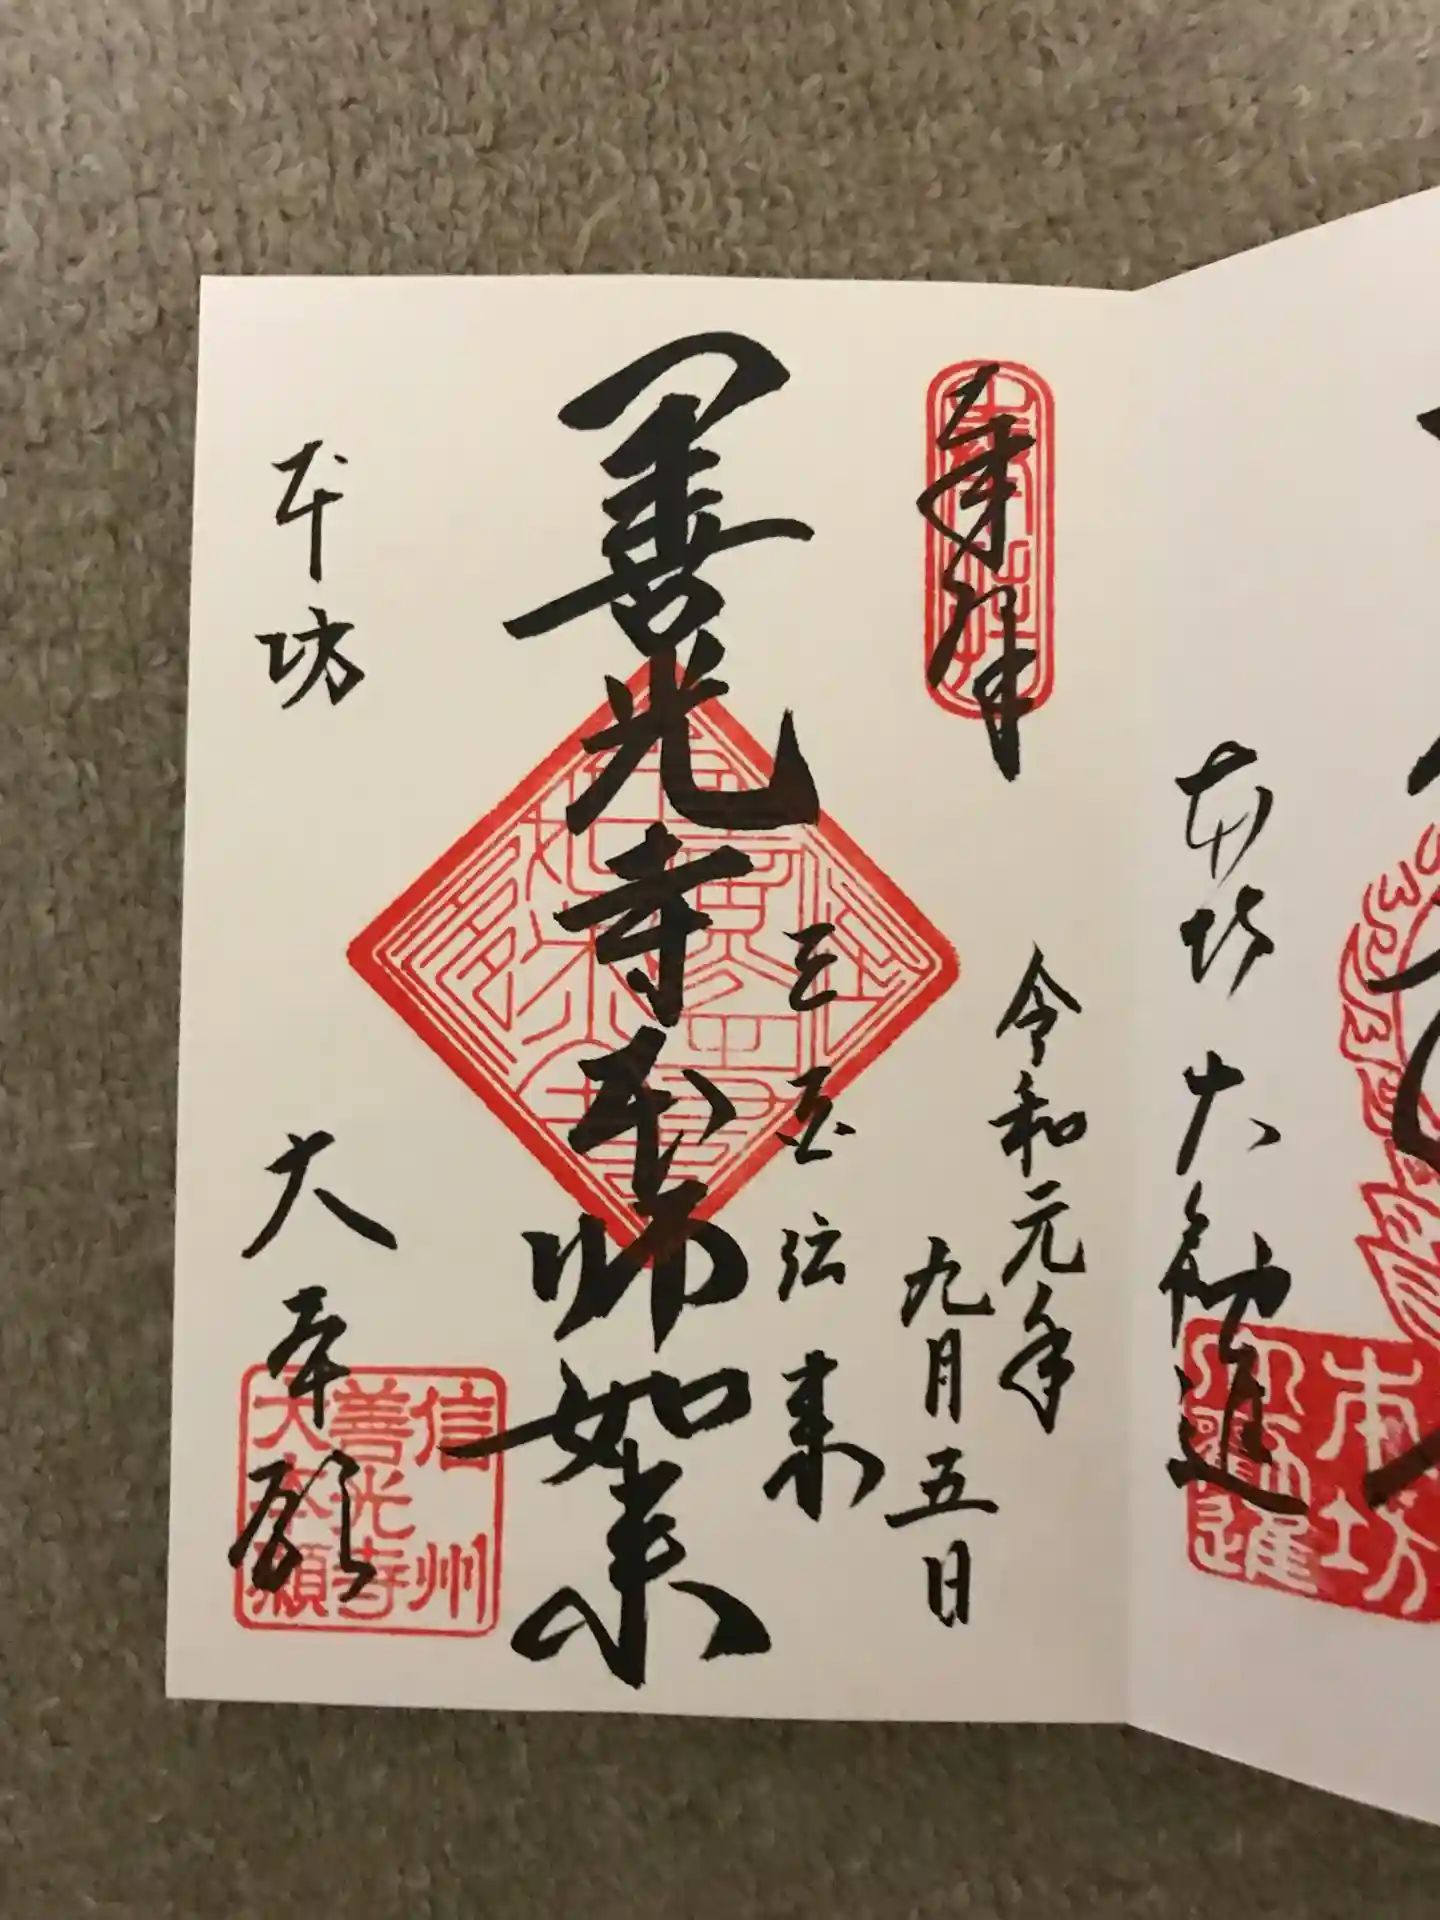 本坊 大勧進
本坊
大勧進
奉拝
令和元年
九月五日
三国伝来
善光寺本師如来
本坊 大本願
信州
善光寺
大本願